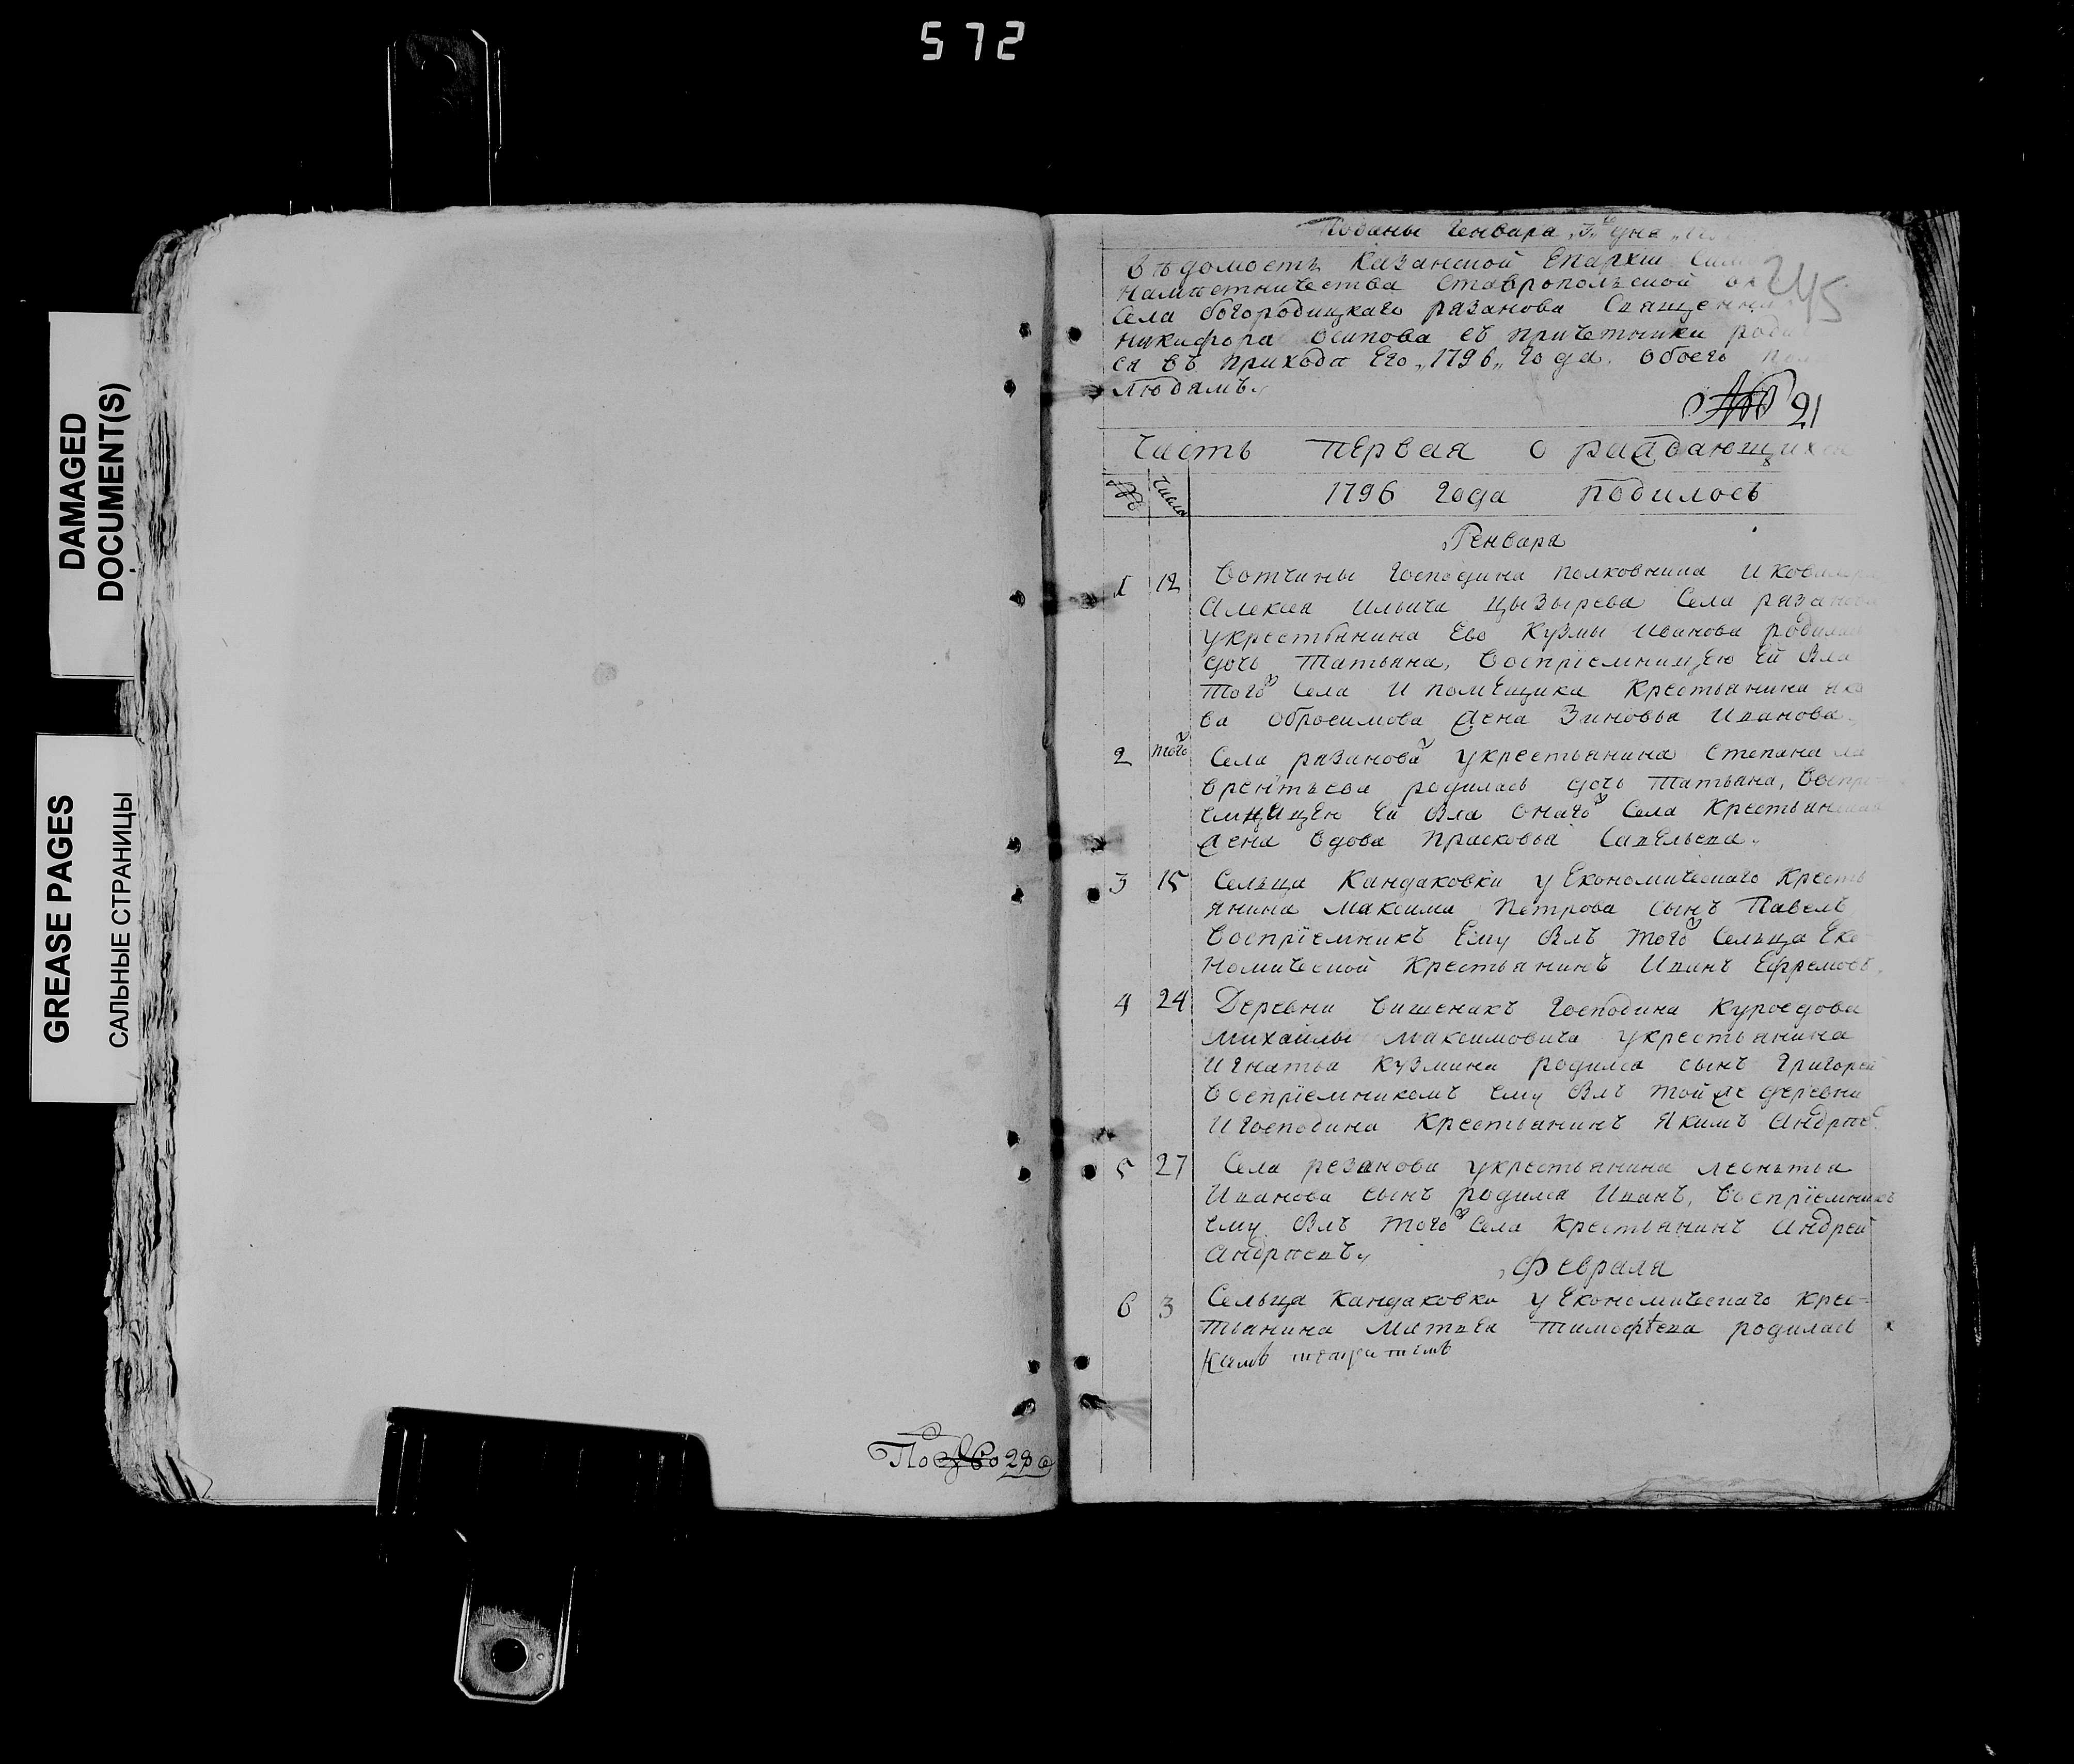 572
DAMAGED
DOCUMENT(S)
GREASE PAGES
САЛЬНЫЕ СТРАНИЦЫ
Поданы Генваря „3„ дня
Ведомость Казанской Епархіи
наместничества Ставропольской
245
Села богородицкаго рязанова Священни
никифора осипова съ причетники роди
ся въ прихода Его „1796„ года обоего пол
людямъ
21
Часть первая о раждающихся
Числа
1796 года родилось
Генваря
1 12 Вотчины Господина полковника и ковале
Алексея Ильича Цызырева Села рязанова
укрестьянина Ево Кузмы Иванова родилась
дочь Татьяна, Воспріемницею Ей Бла
того Села И помещика Крестьянина яко
ва обросимова жена Зиновья Иванова
2 того Села рязанова укрестьянина Степана ла
врентьева родилась дочь Татьяна, Воспрі
емницею Ей Бла онаго Села Крестьянская
жена вдова Прасковья Савельева
3 15 Сельца Кандаковки у Економическаго Кресть
янина Максима Петрова сынъ Павелъ
Воспріемникъ Ему Блъ того Сельца Еко
номической Крестьянинъ Иванъ Ефремовъ
4 24 Деревни Вишеникъ Господина Куроедова
Михайлы Максимовича укрестьянина
Игнатья Кузмина родился сынъ Григорей
Воспріемникомъ ему Блъ тойже деревни
И Господина Крестьянинъ Якимъ Андрее
5 27 Села резанова укрестьянина леонтья
Иванова сынъ родился Иванъ, Воспріемникъ
ему Блъ того Села Крестьянинъ Андрей
Андреевъ
Февраля
6 3 Сельца Кандаковки у Економическаго Крес-
тьянина Матвея Тимофеева родилась
По 280